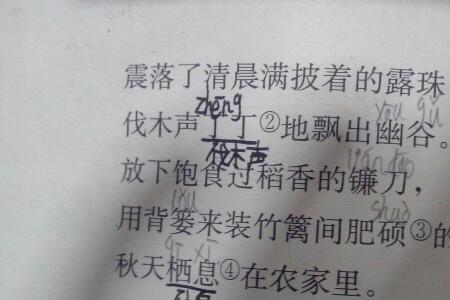 震落了清晨满披着的露珠
zhēng
yōu gǔ
伐木声丁丁②地飘出幽谷。
伐木声
lián dāo
放下饱食过稻香的镰刀，
lǒu
shuò
用背篓来装竹篱间肥硕③的
qī xī
秋天栖息④在农家里。